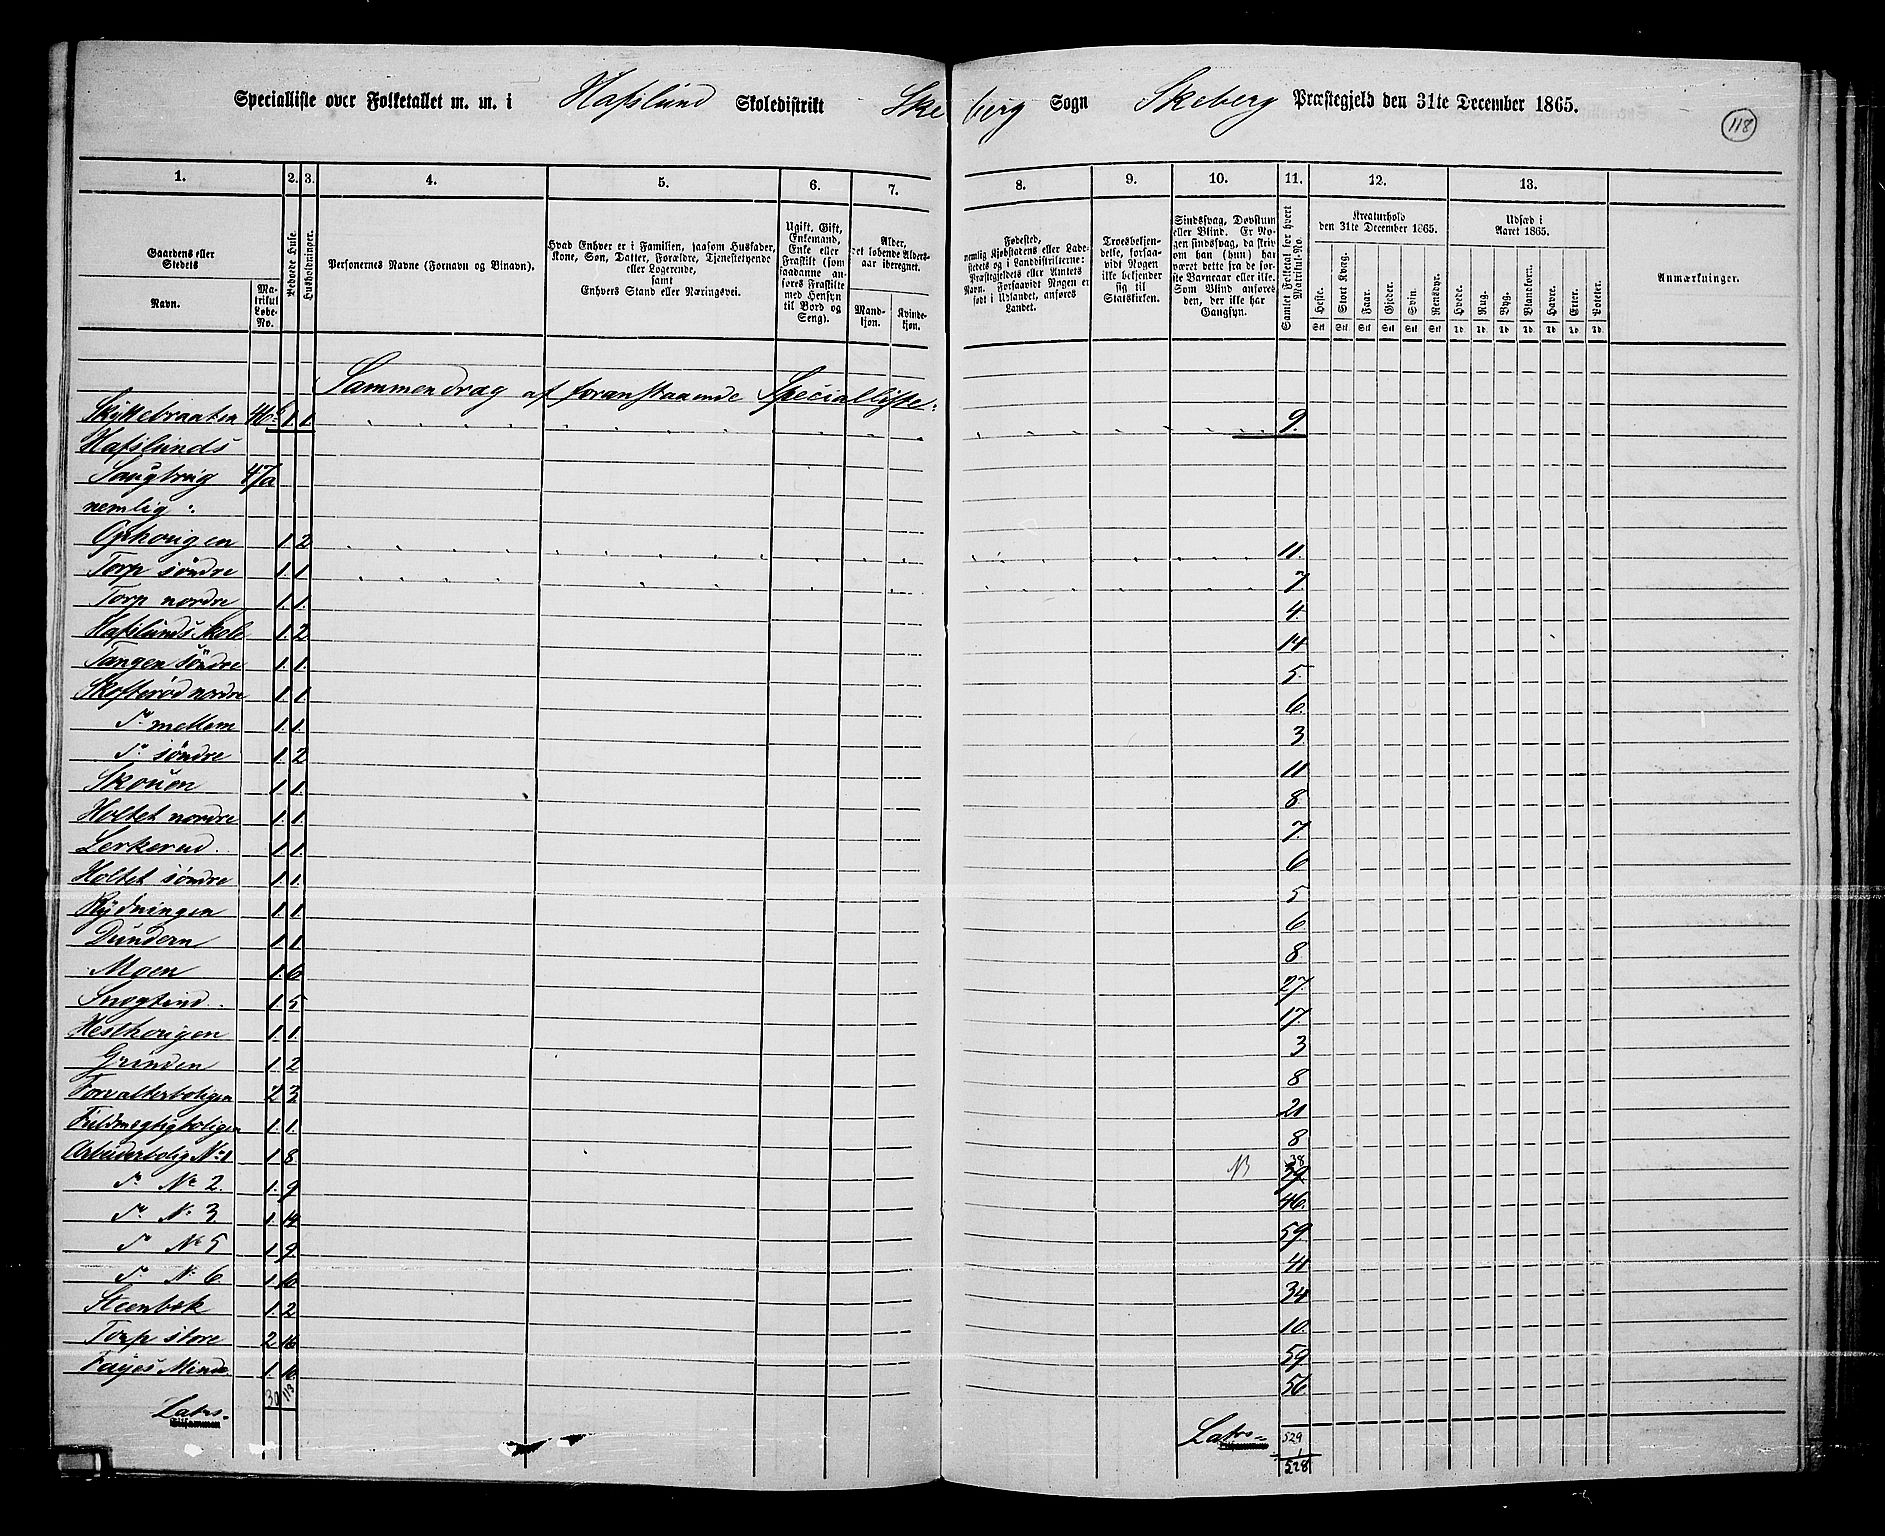 Specialliste over Folketallet m. m. i Hafslund Skoledistrikt Skeberg Sogn Skeberg Præstegjeld den 31te December 1865.
118
1. 2. 3. 4. 5. 6. 7. 8. 9. 10. 11. 12. 13.
Gaardens eller Stedets
Navn.
Matrikul Løbe-No.
Beboede Huse.
Husholdninger.
Personernes Navne (Fornavn og Tilnavn).
Hvad Enhver er i Familien, saasom Husfader, Kone, Søn, Datter, Forældre, Tjenestetyende eller Logerende, samt Enhvers Stand eller Næringsvei.
Ugift, Gift, Enkemand, Enke eller Fraskilt (som saadanne anføres Fraskilte med Hensyn til Bord og Seng).
Alder, det løbende Aldersaar iberegnet.
Mandkjøn.
Kvindekjøn.
Fødested, nemlig Kjøbstadens eller Ladestedets og i Landdistrikterne: Præstegjeldets eller Amtets Navn. Forsaavidt Nogen er født i Udlandet, anføres Landet.
Troesbekjendelse, forsaavidt Nogen ikke bekjender sig til Statskirken.
Sindssvag, Døvstum eller Blind. Er Nogen sindssvag, da skrives om han (hun) har været dette fra de første Barneaar eller ikke. Som Blind anføres den, der ikke har Gangsyn.
Samlet Folketal for hvert Matrikul-No.
Kreaturhold den 31te December 1865.
Heste. Stort Kvæg. Faar. Gjeder. Svin. Rensdyr.
Stk Stk Stk Stk Stk Stk
Udsæd i Aaret 1865.
Hvede. Rug. Byg. Blandkorn. Havre. Erter. Poteter.
Td. Td. Td. Td. Td. Td. Td.
Anmærkninger.
Sammendrag af foranstaaende Specialliste:
Skittebraaten 46b 1 1 9.
Hafslunds
Saugbrug 47a
nemlig:
Ophougen 1. 2 11.
Torp søndre 1. 1. 7
Torp nordre 1. 1. 4.
Hafslunds Skole 1. 2. 14
Tangen søndre 1. 1. 5.
Skofterød nordre 1. 1 6.
Do mellem 1. 1. 3.
Do søndre 1. 2 11
Skouen 1. 1. 8.
Holtet nordre 1. 1. 7.
Lerkerud. 1. 1 6
Holtet søndre 1. 1. 5
Rydningen 1. 1 6
Dundern 1. 1. 8
Moen 1. 6 27.
1. 5 17.
Hesthougen 1. 1. 3
Grinden 1 2 8
Forvalterboligen 2 3 21
Fuldmegtigboligen 1. 1. 8
Arbeiderbolig No 1 1 8 N 39 38
Do No 2. 1. 9 46.
Do No 3 1. 14 59.
Do No 5 1. 9. 41
Do No 6. 1. 10. 34
Steenbek 1. 2 10.
Torp store 2 16 59
Fayes Minde. 1. 10. 56
Lats- 30 113 Lats-
Tilsammen
529
1
528